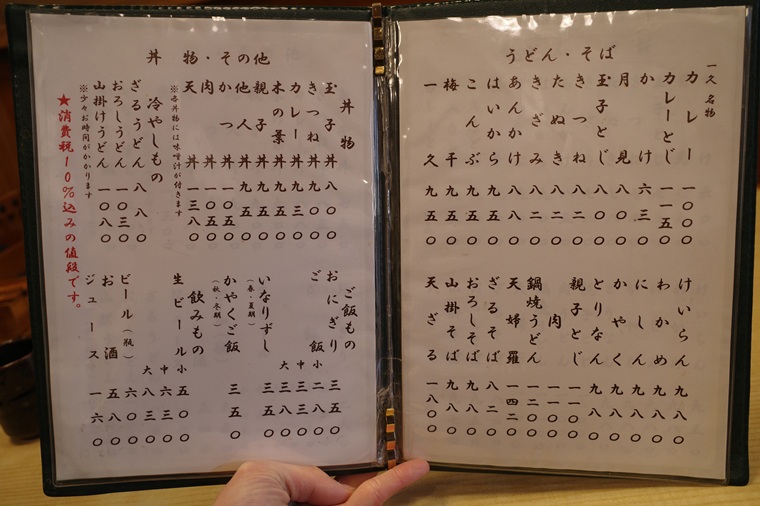 うどん・そば
一久名物
カレー 一〇〇〇
カレーとじ 一一五〇
かけ 六三〇
月見 八〇〇
玉子とじ 八〇〇
きつね 八二〇
たぬき 八二〇
きざみ 八二〇
あんかけ 八八〇
はいから 九五〇
こんぶ 九五〇
梅干 九五〇
一久 九五〇
けいらん 九八〇
わかめ 九八〇
にしん 九八〇
かやく 九八〇
とりなん 九八〇
親子とじ 一一〇〇
肉 一一〇〇
鍋焼うどん 一二〇〇
天婦羅 一四二〇
ざるそば 八二〇
おろしそば 九八〇
山掛そば 九八〇
天ざる 一八〇〇
丼物・その他
丼物
丼 八〇〇
きつね丼 九〇〇
カレー丼 九三〇
木の葉丼 九五〇
親子丼 九五〇
他人丼 九五〇
かつ丼 一〇五〇
肉丼 一〇五〇
天丼 一三八〇
※各丼物には味噌汁が付きます
冷やしもの
ざるうどん 八八〇
おろしうどん 一〇三〇
山掛けうどん 一〇八〇
※少々お時間がかかります
★消費税10%込みの値段です。
ご飯もの
おにぎり 三五〇
ご飯 小 二八〇
中 三三〇
大 三八〇
いなりずし 三五〇
(春・夏期)
かやくご飯 三五〇
(秋・冬期)
飲みもの
生ビール 小 五〇〇
中 六三〇
大 八三〇
ビール(瓶) 六〇〇
お酒 五八〇
ジュース 一六〇